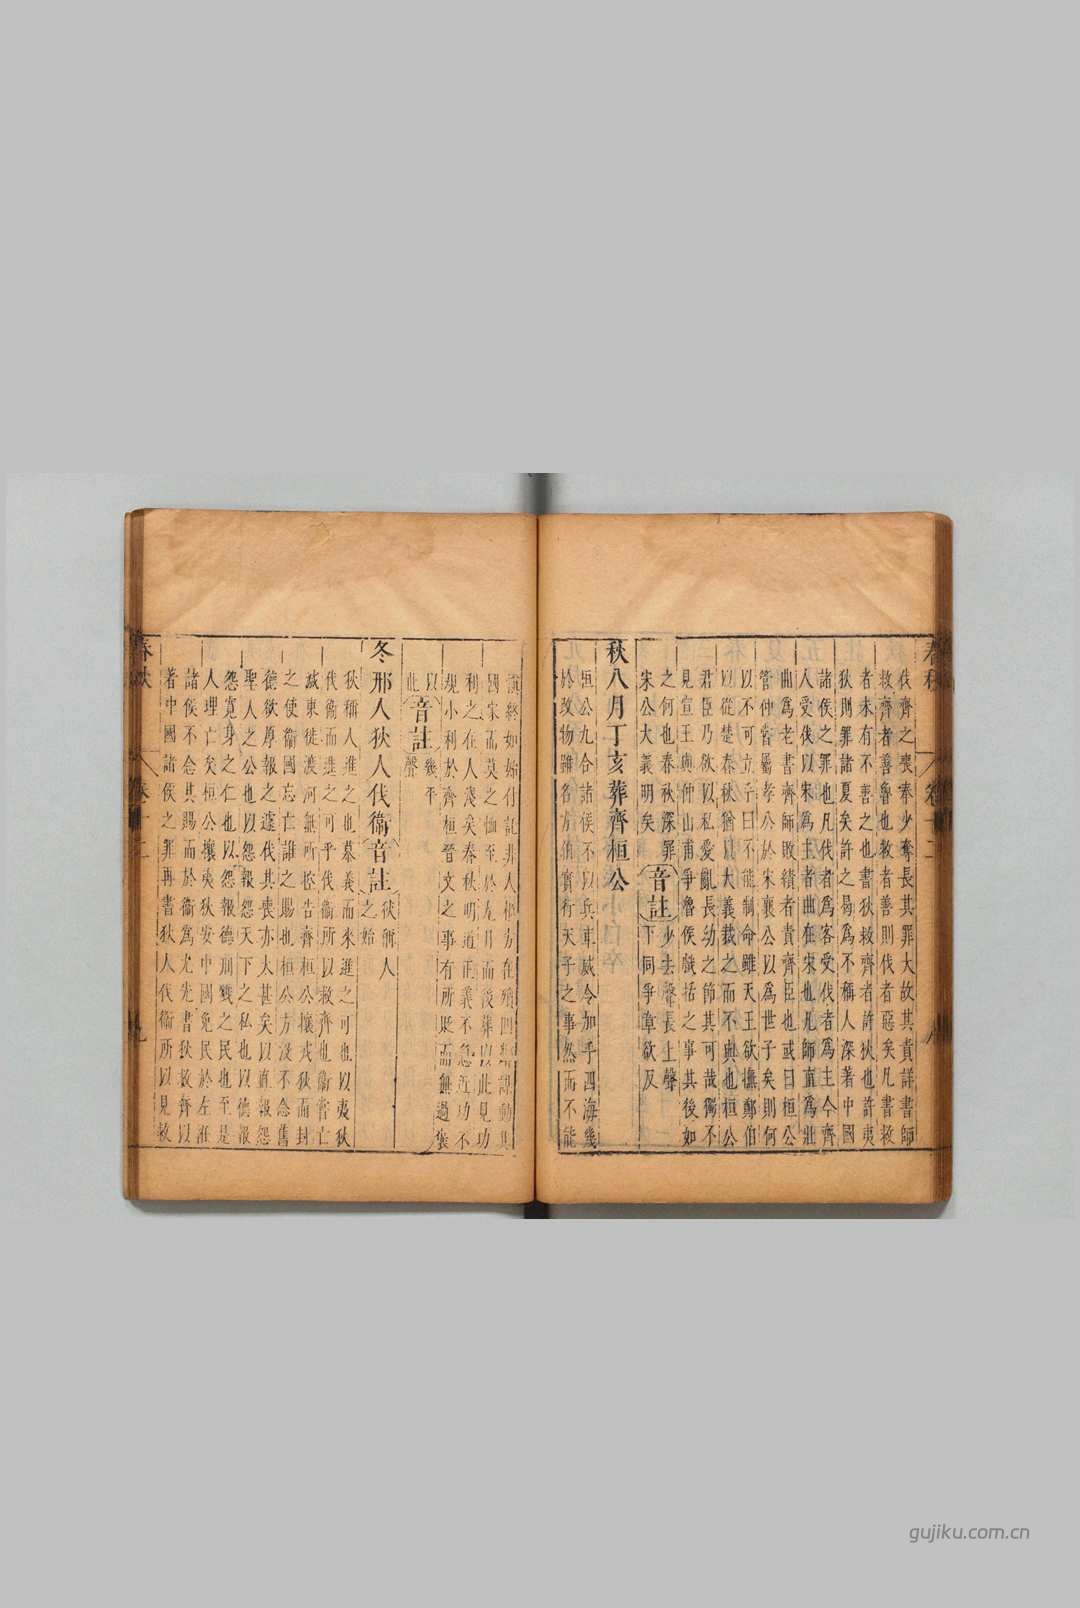 春秋
卷十二
八
伐齊之喪奉少奪長其罪大故其責詳書師
救齊者善魯也救者善則伐者惡矣凡書救
者未有不善之也書狄救齊者許狄也許夷
狄則罪諸夏矣許之曷為不稱人深著中國
諸侯之罪也凡伐者為客受伐者為主今齊
人受伐以宋為主者曲在宋也凡師直為壯
曲為老書齊師敗績者責齊臣也或曰桓公
管仲嘗屬孝公於宋襄公以為世子矣則何
以不可立乎曰不能制命雖天王欲撫鄭伯
以從楚春秋猶以大義裁之而不與也桓公
君臣乃欲以私愛亂長幼之節其可哉獨不
見宣王與仲山甫爭魯侯戲括之事其後如
之何也春秋深罪
宋公大義明矣
音註
少去聲長上聲
下同爭章欲反
秋八月丁亥葬齊桓公
桓公九合諸侯不以兵車威令加乎四海幾
於改物雖名方伯實行天子之事然而不能
慎終如始付託非人柩方在殯四鄰謀動其
國家而莫之恤至於九月而後葬以此見功
利之在人淺矣春秋明道義不急近功不
規小利於齊桓晉文之事有所貶而無過褒
以
此
音註
幾平
聲
冬邢人狄人伐衛
音註
狄稱人
之始
狄稱人進之也慕義而來進之可也以夷狄
伐衛而進之可乎伐衛所以救齊也衛嘗亡
滅東徙渡河無所控告齊桓公攘戎狄而封
之使衛國忘亡誰之賜也桓公方沒不念舊
德欲厚報之遽伐其喪亦太甚矣以直報怨
聖人之公也以怨報怨天下之私也以德報
怨寬身之仁也以怨報德刑戮之民也至是
人理亡矣桓公攘夷狄安中國免民於左衽
諸侯不念其賜而於衛為尤先書狄救齊以
著中國諸侯之罪再書狄人伐衛所以見救
春秋
卷十二
九
gujiku.com.cn